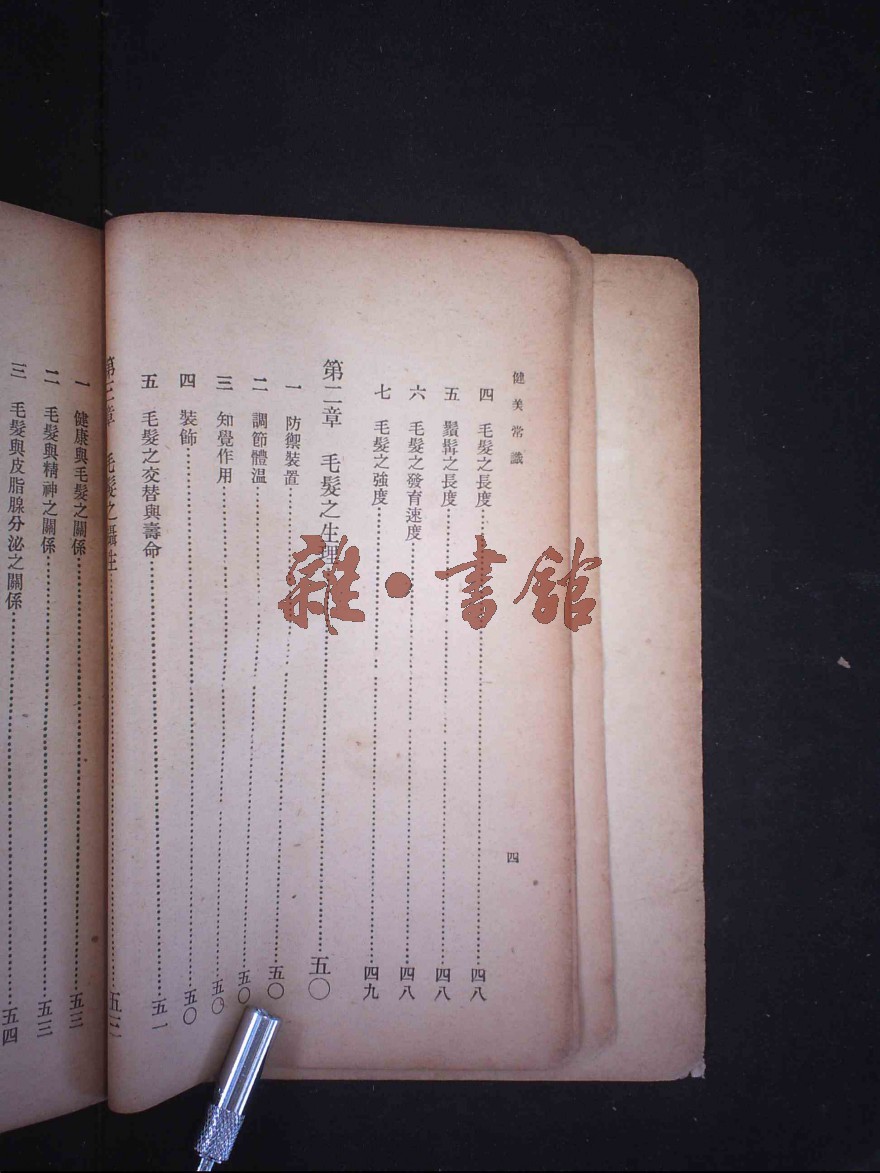 健美常識
四
四 毛髮之長度……四八
五 鬚髯之長度……四八
六 毛髮之發育速度……四八
七 毛髮之強度……四九
第二章 毛髮之生理……五〇
一 防禦裝置……五〇
二 調節體溫……五〇
三 知覺作用……五〇
四 裝飾……五〇
五 毛髮之交替與壽命……五一
第三章 毛髮之攝生……五三
一 健康與毛髮之關係……五三
二 毛髮與精神之關係……五三
三 毛髮與皮脂腺分泌之關係……五四
雜·書館